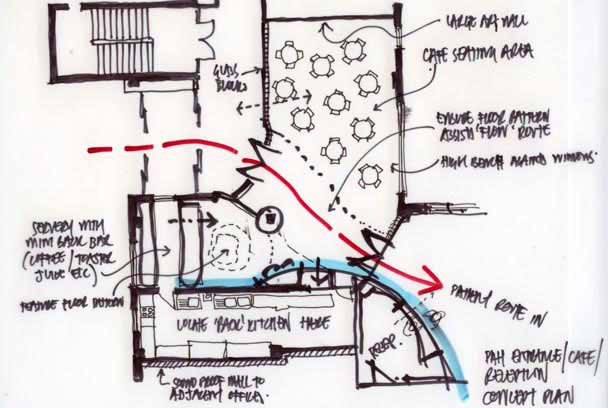 LARGE ART WALL
CAFE SEATING AREA
GLASS
BLOCKS
ENSURE FLOOR PATTERN
ASSIST 'FLOW' ROUTE
HIGH BENCH AGAINST WINDOWS.
SERVERY WITH
MINI BACK BAR
(COFFEE/TOASTER
JUICE ETC)
FEATURE FLOOR PATTERN
LOCATE 'BACK' KITCHEN HERE
SOUND PROOF WALL TO
ADJACENT OFFICES.
RECEP.
PATIENT ROUTE IN
PAH ENTRANCE/CAFE/
RECEPTION
CONCEPT PLAN